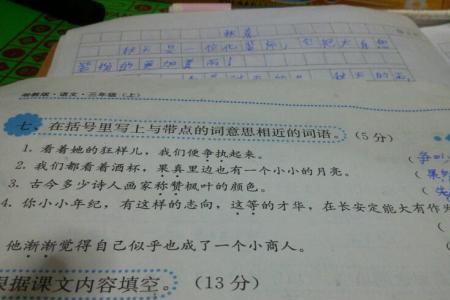 秋天是一位化妆师，它把大自然
更加美丽！
湘教版·语文·三年级（上）
七、在括号里写上与带点的词意思相近的词语。（5分）
1. 看着她的狂样儿，我们便争执起来。（争
2. 我们都看着酒杯，果真里边也有一个小小的月亮。（果
3. 古今多少诗人画家称赞枫叶的颜色。（
4. 你小小年纪，有这样的志向，这等的才华，在长安定能大有作
（
他渐渐觉得自己似乎也成了一个小商人。（
根据课文内容填空。（13分）